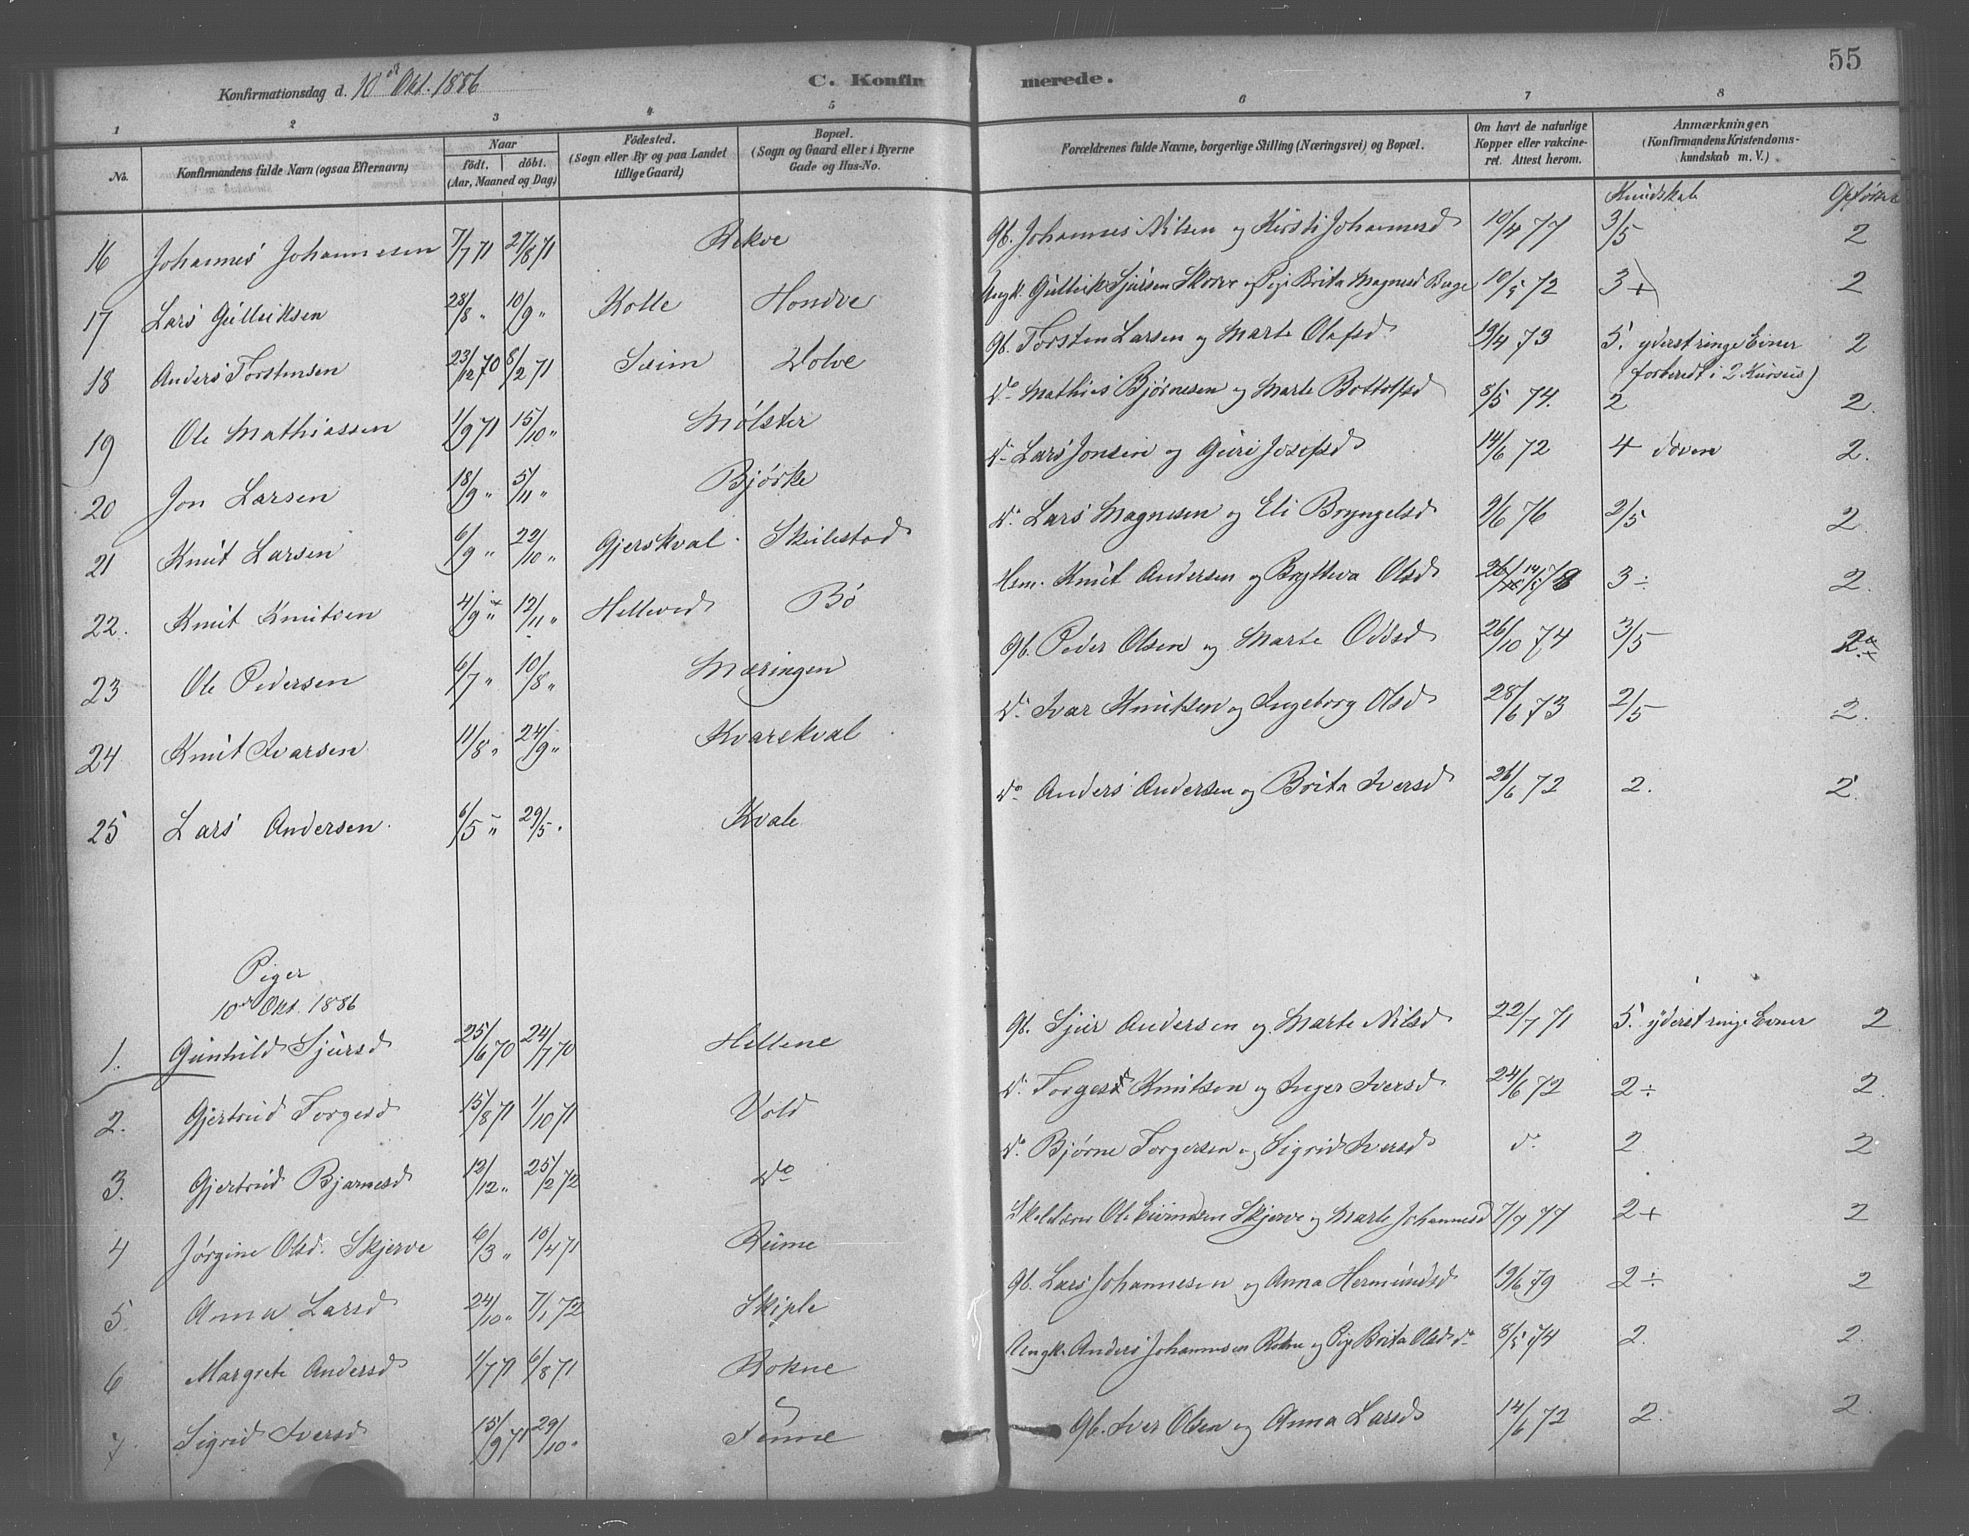 55
Konfirmationsdag d. 10de Okt. 1886 C. Konfirmerede.
1 2 3 4 5 6 7 8
No. Konfirmandens fulde Navn (ogsaa Efternavn) Naar født. døbt. (Aar, Maaned og Dag) Fødested. (Sogn eller By og paa Landet tillige Gaard) Bopæl. (Sogn og Gaard eller i Byerne Gade og Hus-No. Forældrenes fulde Navne, borgerlige Stilling (Næringsvei) og Bopæl. Om havt de naturlige Kopper eller vakcineret. Attest herom. Anmærkninger (Konfirmandens Kristendomskundskab m. V.)
Kundskab Opførsel
16 Johannes Johannesen 7/7 71 27/8 71 Rekve Gb. Johannes Nilsen og Kirsti Johannesd 10/4 77 3/5 2
17 Lars Gulleiksen 28/8 " 10/9 " Kolle Hondve Ungk. Gulleik Sjursen og Pige Brita Magnesd 10/5 72 3+ 2
18 Anders Torstensen 23/12 70 8/2 71 Seim Volve Gb. Torsten Larsen og Marte Olafsd 19/4 73 5. yderst ringe Evner (forberedt i 2 Kursus) 2
19 Ole Mathiassen 1/9 71 15/10 " Mølster Do Mathias Bjørnesen og Marte Bottolfsd 8/5 74. 2 2.
20 Jon Larsen 18/9 " 5/11 " Bjørke Do Lars Jonsen og Guri Josefsd 14/6 72 4 doven 2.
21 Knut Larsen 6/9 " 22/10 " Gjerskval Skulestad Do Lars Magnesen og Eli Bryngelsd 9/6 76 2/5 2.
22. Knut Knutsen 4/9 " 12/11 " Helleved Bø Hsm. Knut Andersen og Bryteva Olsd 3 ÷ 2.
23 Ole Pedersen 6/7 " 10/8 " Mæringen Gb. Peder Olsen og Marte Oddsd 26/10 74 3/5 2
24 Knut Ivarsen 11/8 " 24/9 " Kvarekval Do Ivar Knutsen og Ingeborg Olsd 28/6 73 2/5 2.
25 Lars Andersen. 6/5 " 29/5 " Kvale Do Anders Andersen og Brita Iversd 26/6 72 2. 2.
Piger
10de Okt. 1886
1. Gunhild Sjursd 25/6 70 24/7 70 Hellene Gb. Sjur Andersen og Marte Nilsd 22/7 71 5. yderst ringe Evner 2
2. Gjertrud Torgesd 15/8 71 1/10 71 Vold Do Torges Knutsen og Inger Iversd 24/6 72 2 ÷ 2.
3. Gjertrud Bjørnesd 12/12 " 25/2 72 Do Do Bjørne Torgersen og Sigrid Iversd do 2. 2
4 Jørgine Olsd. Skjerve 6/3 " 10/4 71 Rume Ole Skjerve og Marte Johannesd 7/7 77 2+ 2
5. Anna Larsd 24/10 " 7/1 72 Skiple Gb. Lars Johannesen og Anna Hermundsd 19/6 79 2 ÷ 2
6 Margrete Andersd 1/7 71 6/8 71 Rokne Ungk. Anders Johannesen Rokne og Pige Brita Olsd do 8/5 74 2. 2.
7. Sigrid Iversd 15/9 71 29/10 " Finne Gb. Iver Olsen og Anna Larsd 14/6 72 2. 2.